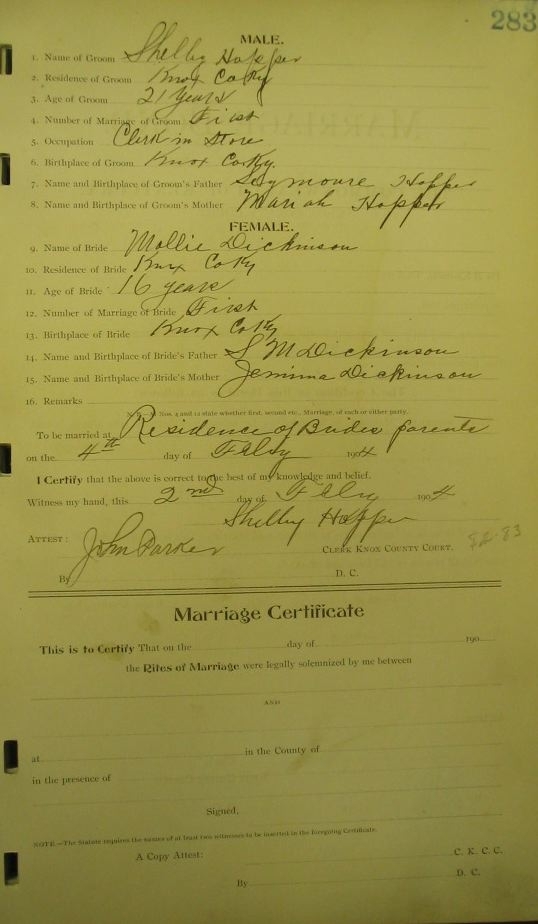 283
MALE.
1. Name of Groom Shelby Hopper
2. Residence of Groom Knox Co Ky
3. Age of Groom 21 Years
4. Number of Marriage of Groom First
5. Occupation Clerk in Store
6. Birthplace of Groom Knox Co Ky
7. Name and Birthplace of Groom's Father Seymoure Hopper
8. Name and Birthplace of Groom's Mother Mariah Hopper
FEMALE.
9. Name of Bride Mollie Dickinson
10. Residence of Bride Knox Co Ky
11. Age of Bride 16 years
12. Number of Marriage of Bride First
13. Birthplace of Bride Knox Co Ky
14. Name and Birthplace of Bride's Father S M Dickinson
15. Name and Birthplace of Bride's Mother Jemima Dickinson
16. Remarks
N. B.—At Nos. 4 and 12 state whether first, second etc., Marriage, of each or either party.
To be married at Residence of Brides parents
on the 4th day of Feby 1904
I Certify that the above is correct to the best of my knowledge and belief.
Witness my hand, this 2nd day of Feby 1904
Shelby Hopper
ATTEST: John Parker CLERK KNOX COUNTY COURT.
By D. C.
Marriage Certificate
This is to Certify That on the day of 190
the Rites of Marriage were legally solemnized by me between
AND
at in the County of
in the presence of
Signed,
NOTE.—The Statute requires the names of at least two witnesses to be inserted in the foregoing Certificate.
A Copy Attest: C. K. C. C.
By D. C.